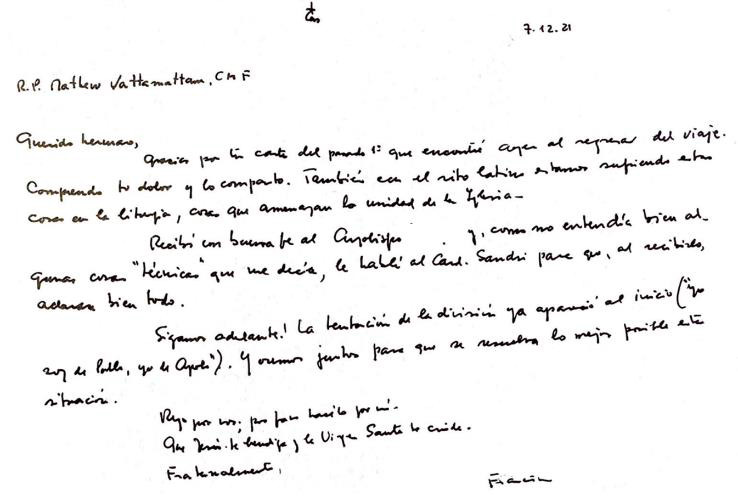 7.12.21
R.P. Mathew Vattamattam, CMF
Querido hermano,
Gracias por tu carta del pasado 1º que encontré ayer al regresar del viaje.
Comprendo tu dolor y lo comparto. También en el rito latino estamos sufriendo estas
cosas en la liturgia, cosas que amenazan la unidad de la Iglesia-
Recibí con buena fe al Arzobispo y, como no entendía bien al-
gunas cosas "técnicas" que me decía, le hablé al Card. Sandri para que, al recibirlo,
aclarara bien todo.
Sigamos adelante! La tentación de la división ya apareció al inicio ("yo
soy de Pablo, yo de Apolo"). Y oremos juntos para que se resuelva lo mejor posible esta
situación.
Rezo por vos; por favor hacelo por mí.
Que Jesús te bendiga y la Virgen Santa te cuide.
Fraternalmente,